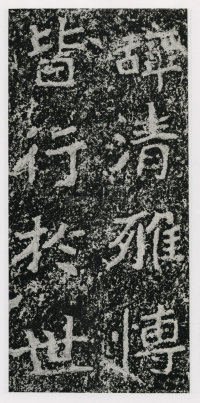 辭清雅博
皆行於世